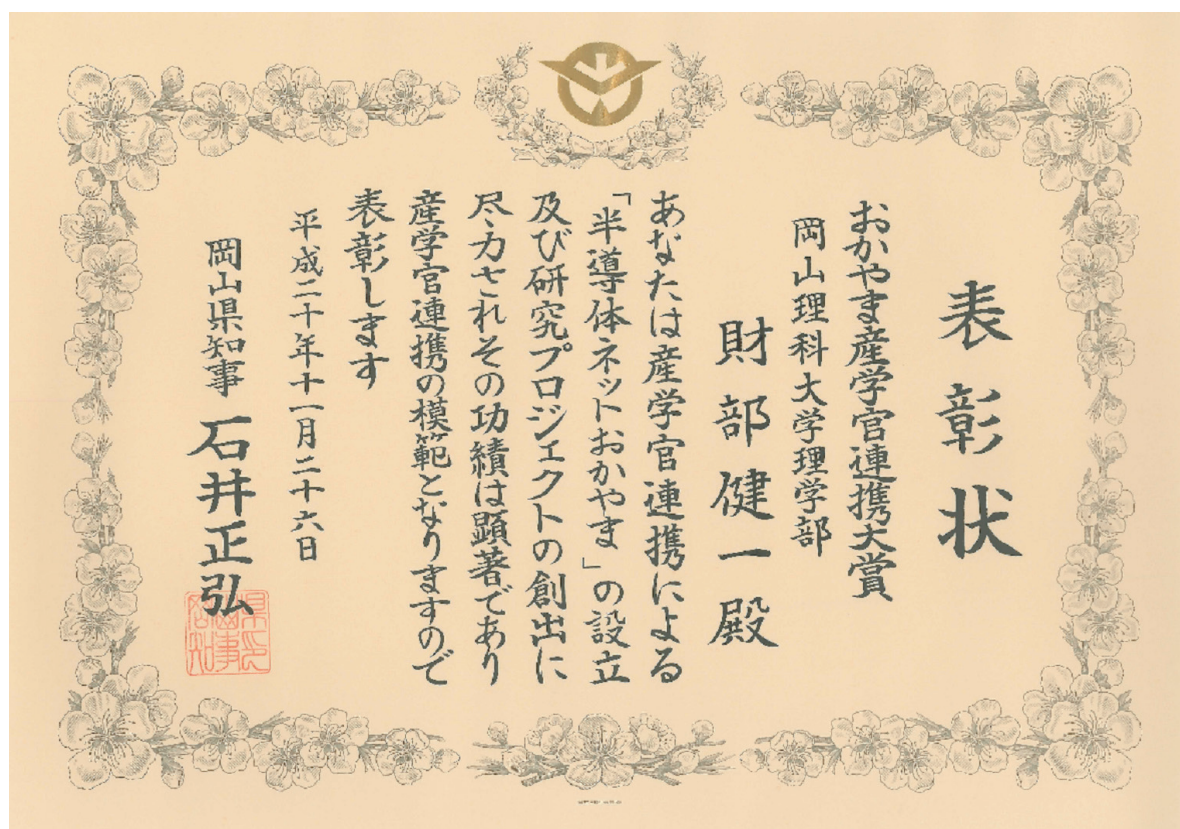 表彰状
おかやま産学官連携大賞
岡山理科大学理学部
財部健一殿
あなたは産学官連携による
「半導体ネットおかやま」の設立
及び研究プロジェクトの創出に
尽力されその功績は顕著であり
産学官連携の模範となりますので
表彰します
平成二十年十一月二十六日
岡山県知事 石井正弘